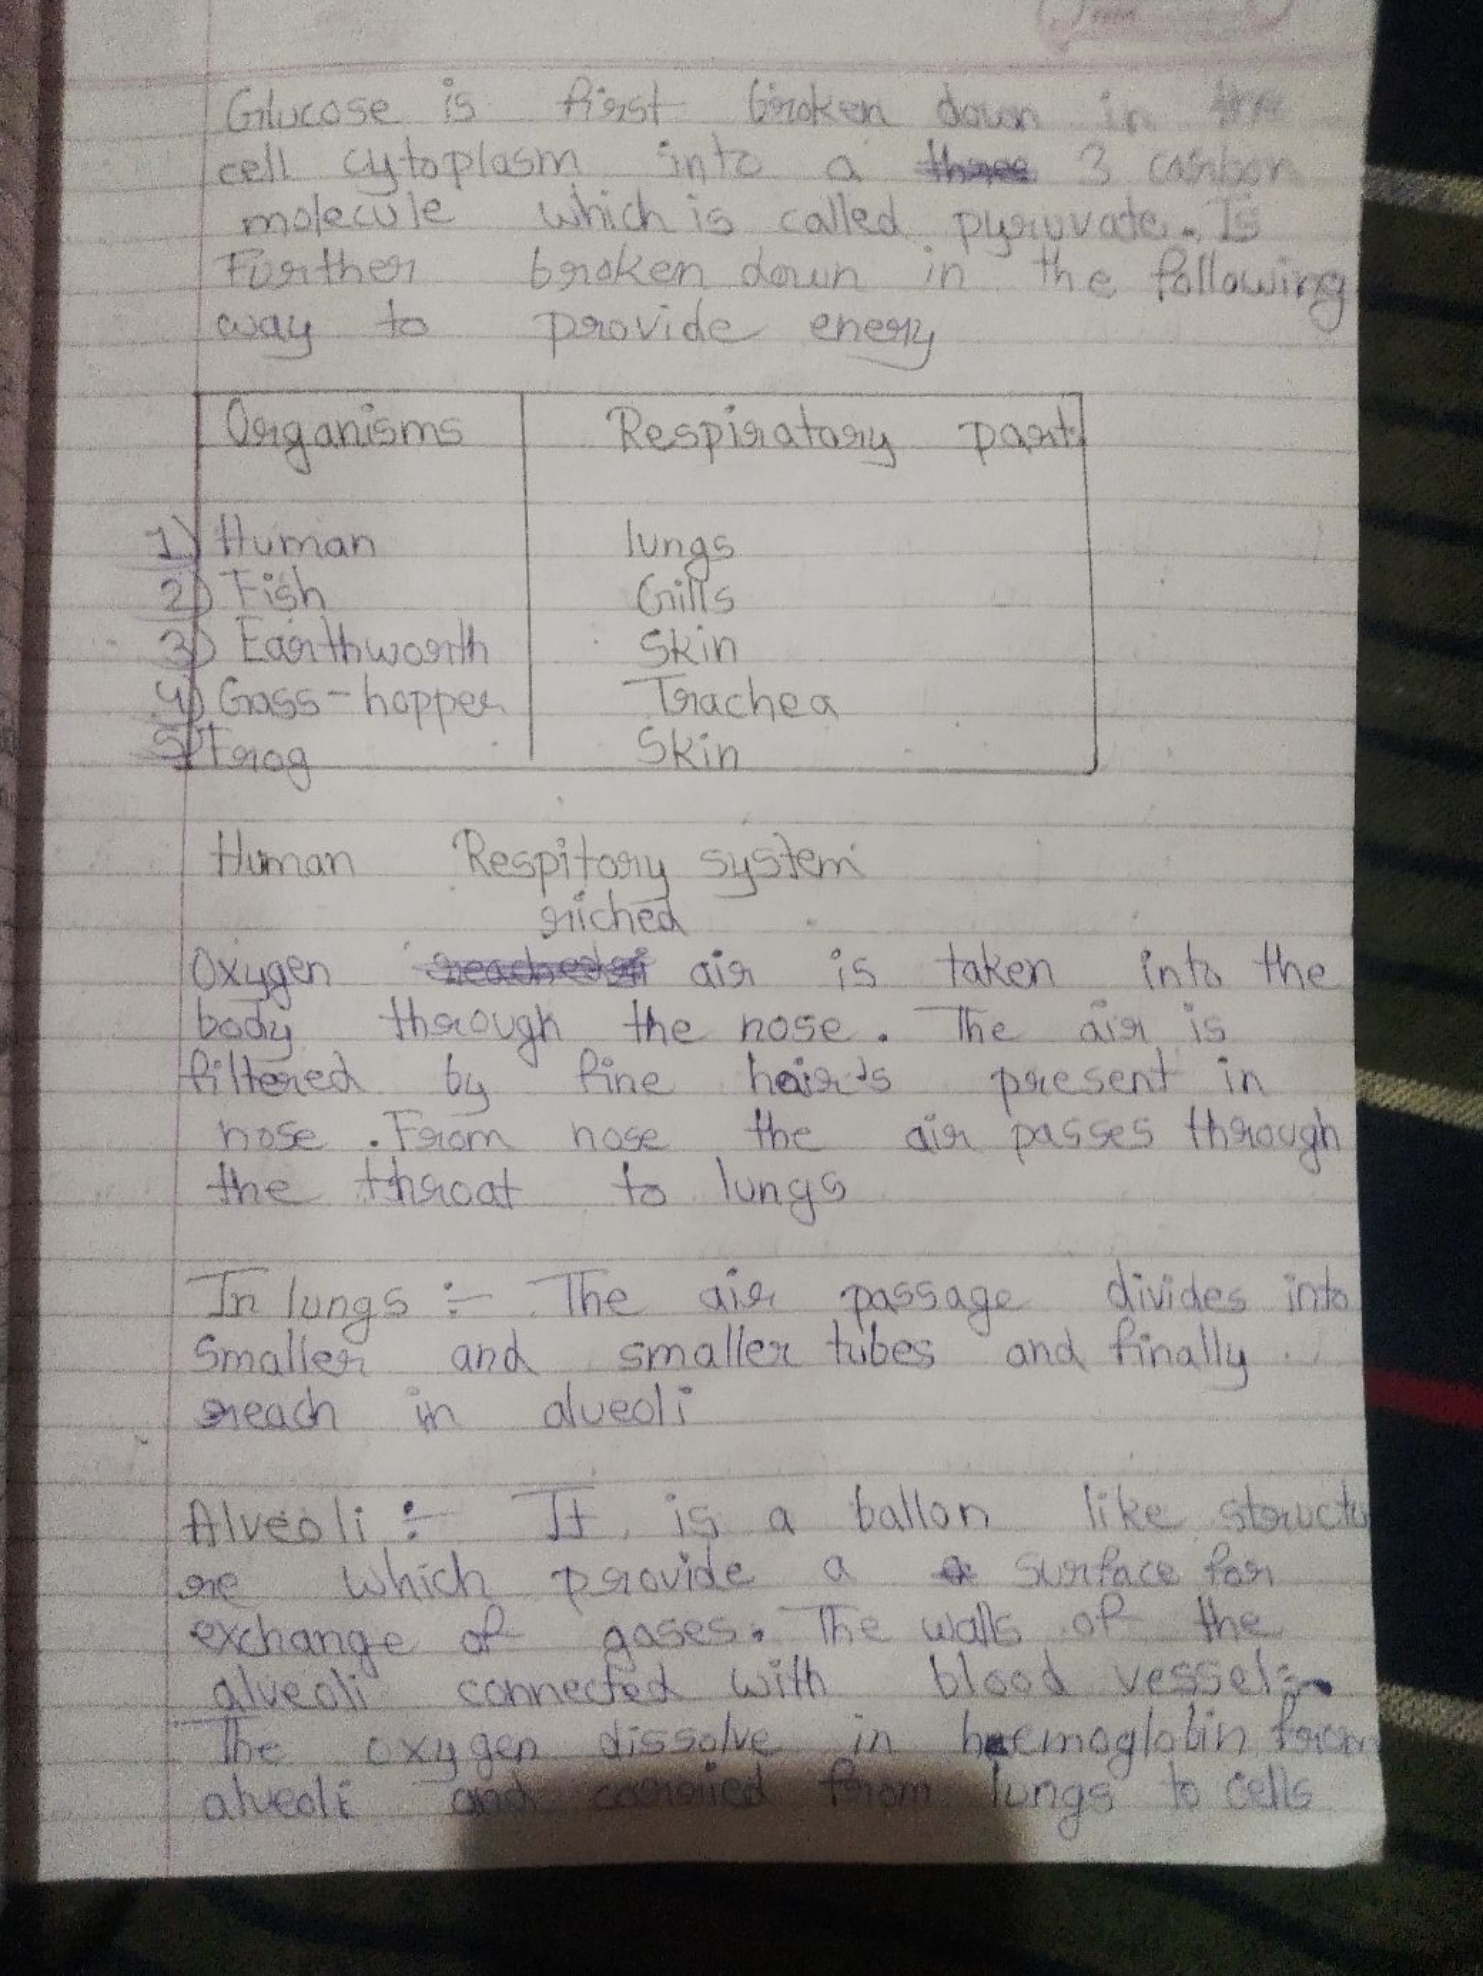 Glucose is first broken down in the
cell cytoplasm into a three 3 carbon
molecule which is called pyruvate. Is
Further broken down in the following
way to provide enery
Organisms Respiratory part
1) Human lungs
2) Fish Gills
3) Earthworth Skin
4) Gass-hopper Trachea
5) Frog Skin
Human Respitory system
riched
Oxygen air is taken into the
body through the nose. The air is
filtered by fine hair's present in
nose. From nose the air passes through
the throat to lungs
In lungs :- The air passage divides into
Smaller and smaller tubes and finally
reach in alveoli
Alveoli :- It is a ballon like structu
re which provide a surface for
exchange of gases. The walls of the
alveoli connected with blood vessels.
The oxygen dissolve in haemoglobin from
alveoli and carried from lungs to cells